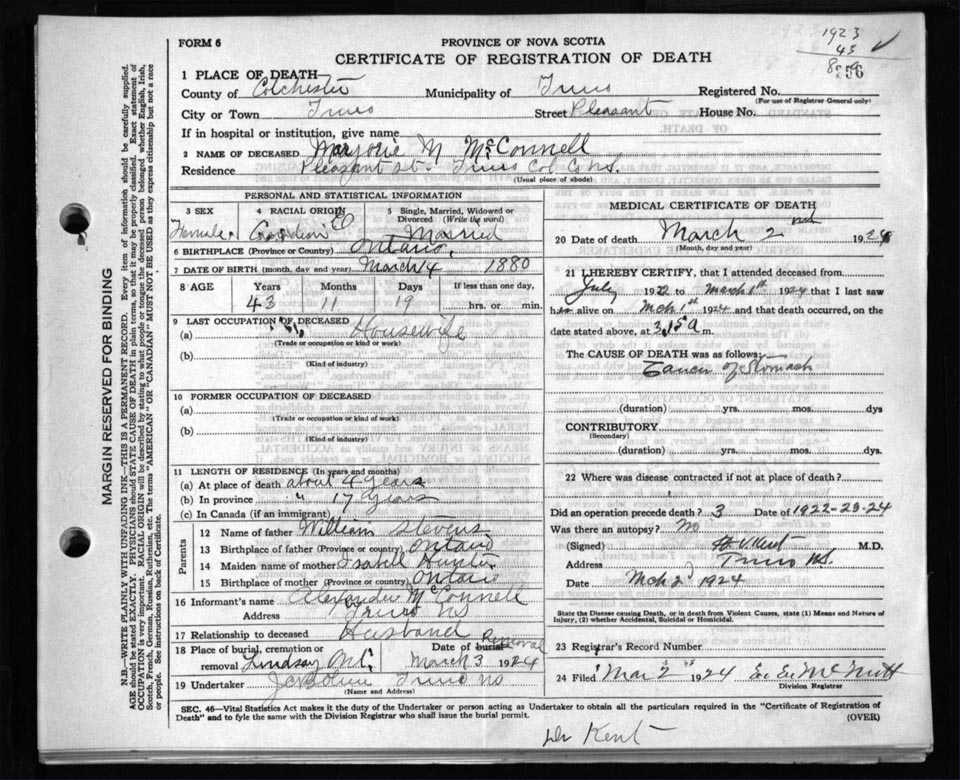 1923
43
FORM 6
PROVINCE OF NOVA SCOTIA
CERTIFICATE OF REGISTRATION OF DEATH
1 PLACE OF DEATH
County of Colchester Municipality of Truro Registered No.
(For use of Registrar General only)
City or Town Truro Street Pleasant House No.
If in hospital or institution, give name
2 NAME OF DECEASED Marjorie M McConnell
Residence Pleasant St. Truro Col. Co N.S.
(Usual place of abode)
PERSONAL AND STATISTICAL INFORMATION
3 SEX 4 RACIAL ORIGIN 5 Single, Married, Widowed or Divorced (Write the word)
Female Married
6 BIRTHPLACE (Province or Country) Ontario
7 DATE OF BIRTH (month, day and year) March 14 1880
8 AGE Years Months Days If less than one day,
43 11 19 hrs. or min.
9 LAST OCCUPATION OF DECEASED
(a) Housewife
(Trade or occupation or kind or work)
(b)
(Kind of industry)
10 FORMER OCCUPATION OF DECEASED
(a)
(Trade or occupation or kind of work)
(b)
(Kind of industry)
11 LENGTH OF RESIDENCE (In years and months)
(a) At place of death about 4 years
(b) In province " 17 years
(c) In Canada (if an immigrant)
Parents
12 Name of father William Stevens
13 Birthplace of father (Province or country) Ontario
14 Maiden name of mother Isabel Hunter
15 Birthplace of mother (Province or country) Ontario
16 Informant's name Alexander McConnell
Address Truro NS
17 Relationship to deceased Husband
18 Place of burial, cremation or removal Lindsay Ont. Date of burial Removal March 3 1924
19 Undertaker Truro NS
(Name and Address)
MEDICAL CERTIFICATE OF DEATH
20 Date of death March 2nd 1924
(Month, day and year)
21 I HEREBY CERTIFY, that I attended deceased from
July 1922 to March 1st 1924 that I last saw
her alive on Mch 1st 1924 and that death occurred, on
date stated above, at 3.15 a m.
The CAUSE OF DEATH was as follows:
Cancer of Stomach
(duration) yrs. mos. dys
CONTRIBUTORY
(Secondary)
(duration) yrs. mos. dys.
22 Where was disease contracted if not at place of death?
Did an operation precede death? 3 Date of 1922-23-24
Was there an autopsy? No
(Signed) H V Kent M.D.
Address Truro N.S.
Date Mch 2 1924
State the Disease causing Death, or in death from Violent Causes, state (1) Means and Nature of Injury, (2) whether Accidental, Suicidal or Homicidal.
23 Registrar's Record Number
24 Filed Mar 2 1924 E. E. McNutt
Division Registrar
SEC. 46—Vital Statistics Act makes it the duty of the Undertaker or person acting as Undertaker to obtain all the particulars required in the "Certificate of Registration of
Death" and to fyle the same with the Division Registrar who shall issue the burial permit.
(OVER)
Dr Kent
MARGIN RESERVED FOR BINDING
N.B.—WRITE PLAINLY WITH UNFADING INK—THIS IS A PERMANENT RECORD. Every item of information should be carefully supplied.
AGE should be stated EXACTLY. PHYSICIANS should STATE CAUSE OF DEATH in plain terms, so that it may be properly classified. Exact statement of
OCCUPATION is very important. RACIAL ORIGIN will be described by stating to what people or tongue the deceased person belonged whether English, Irish,
Scotch, French, German, Russian, Ruthenian, etc. The terms "AMERICAN" OR "CANADIAN" MUST NOT BE USED as they express citizenship but not a race
or people. See instructions on back of Certificate.